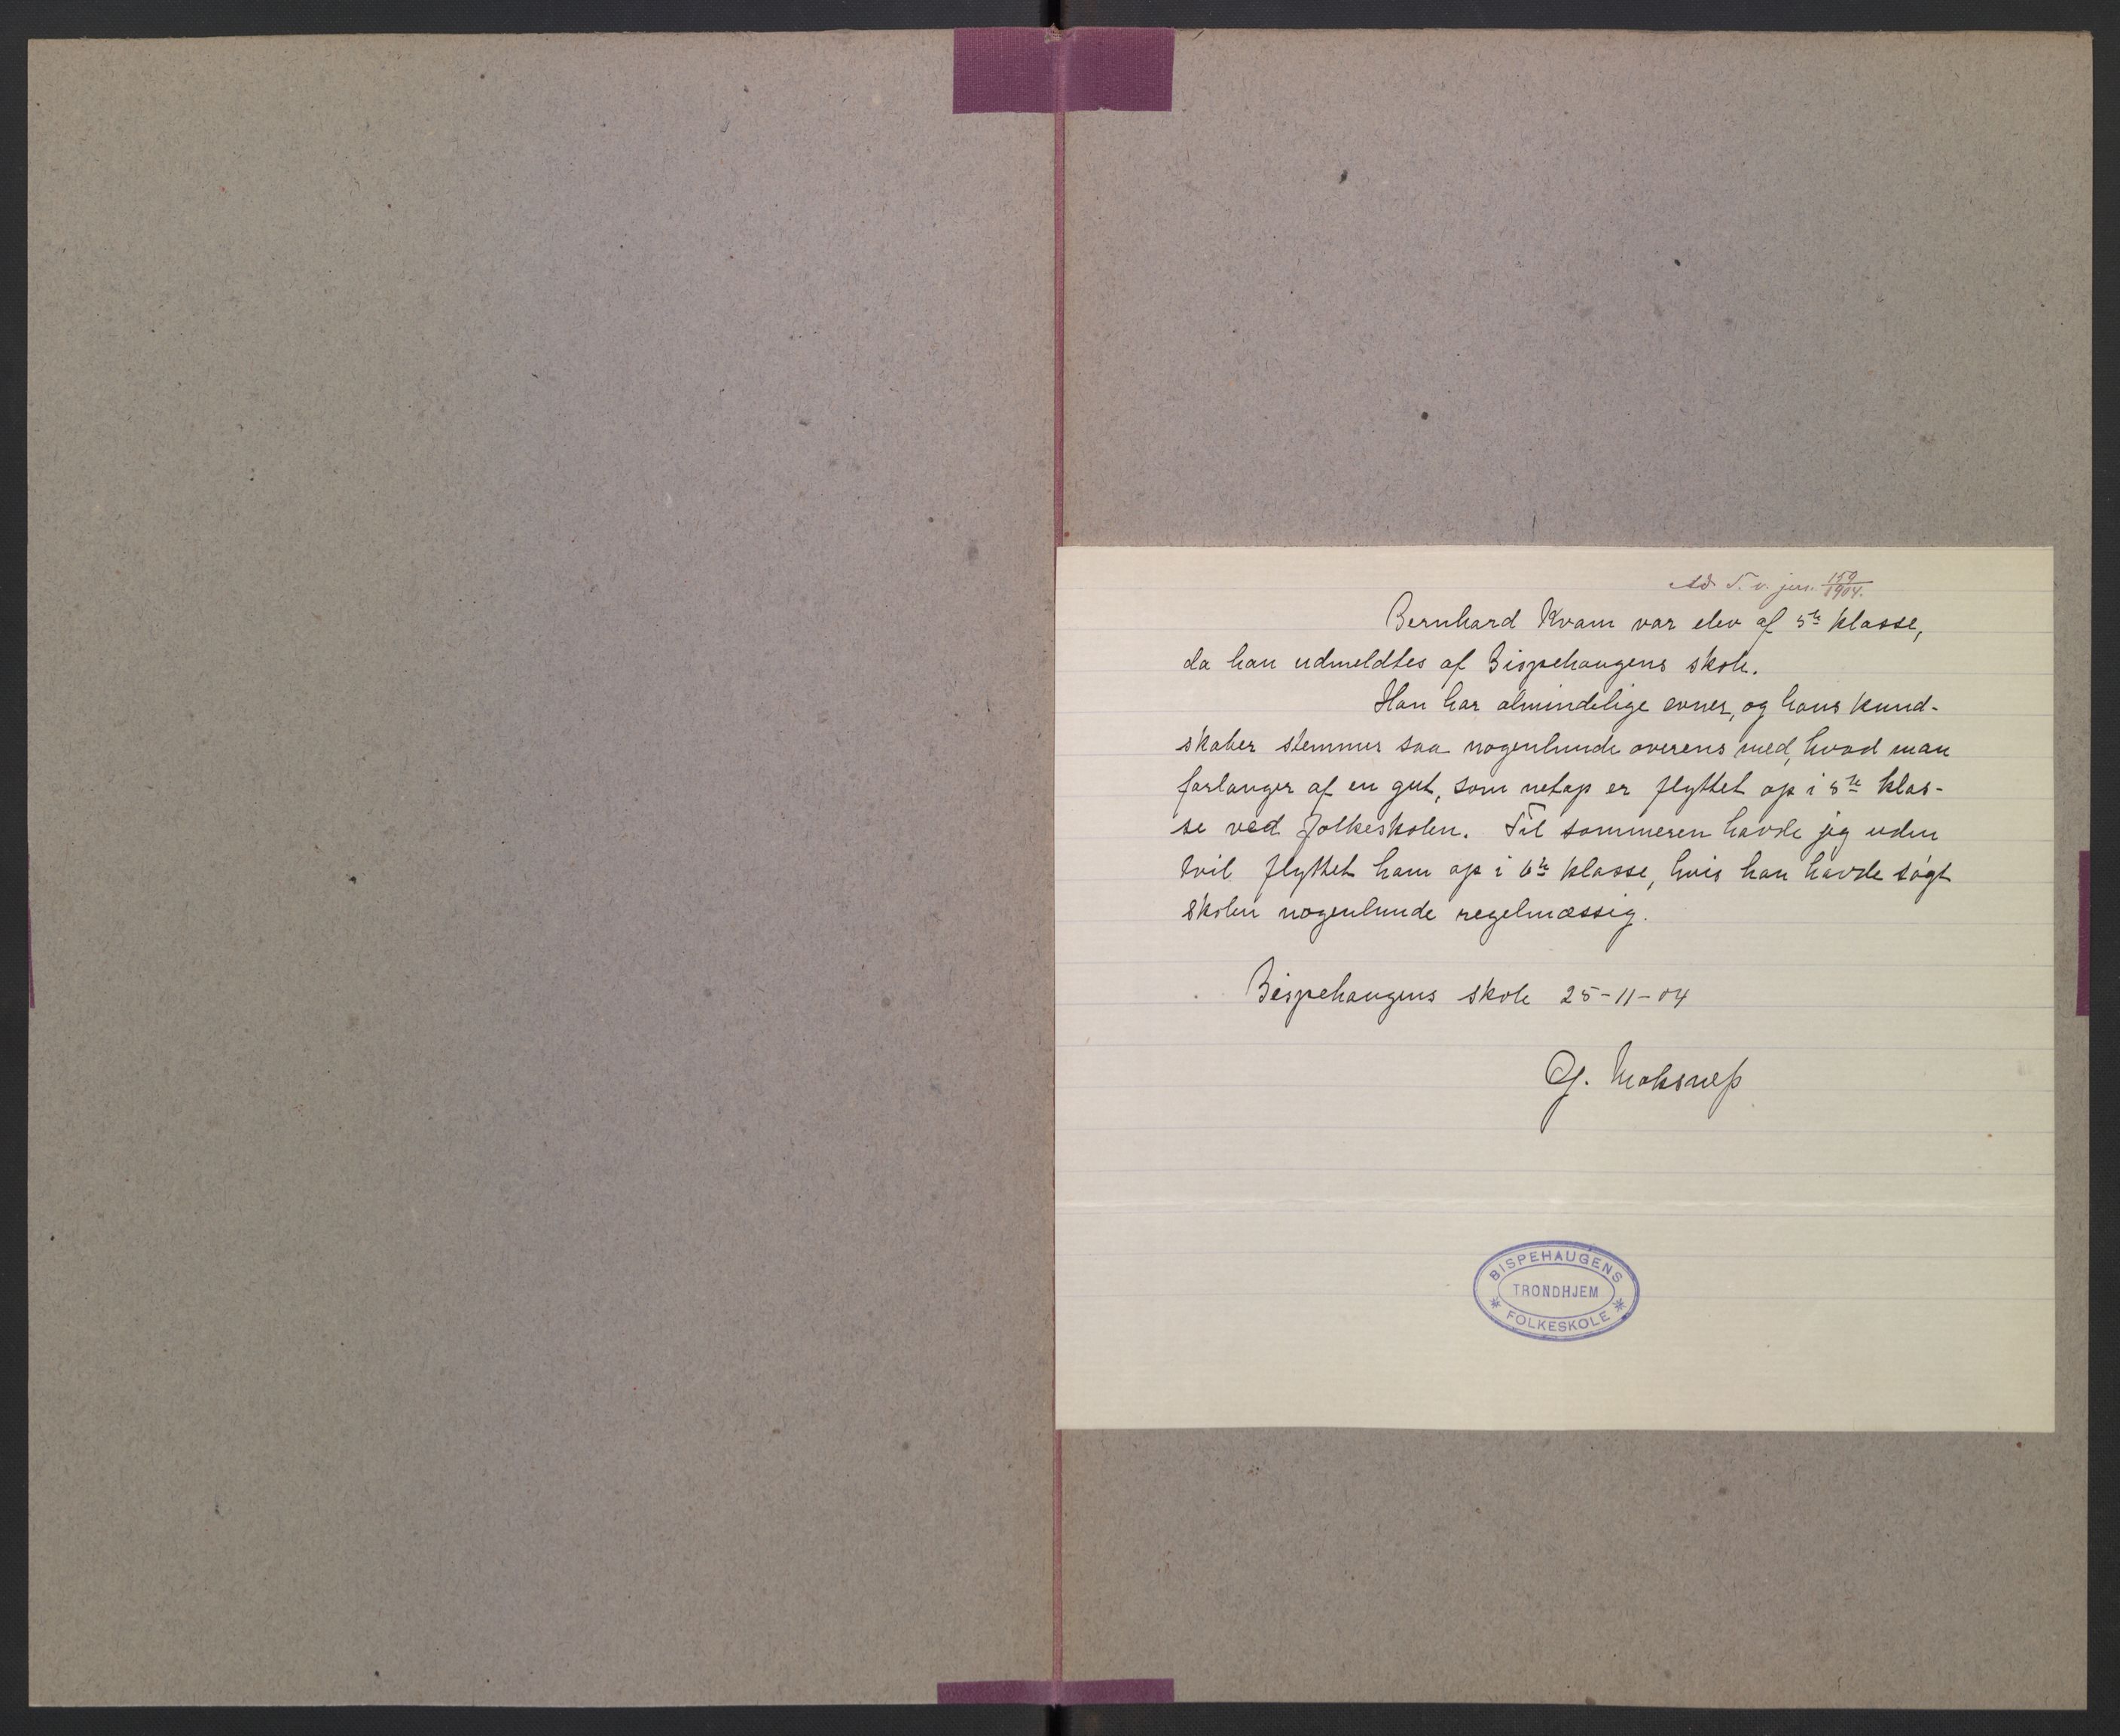 Ad T. v. jnr. 159/1904.
Bernhard Kvam var elev af 5te klasse,
da han udmeldtes af Bispehaugens skole.
Han har almindelige evner, og hans kund-
skaber stemmer saa nogenlunde overens med, hvad man
forlanger af en gut, som netop er flyttet op i 5te klas-
se ved folkeskolen. Til sommeren havde jeg uden
tvil flyttet ham op i 6te klasse, hvis han havde søgt
skolen nogenlunde regelmæssig.
Bispehaugens skole 25-11-04
O. J. Moksness
BISPEHAUGENS
TRONDHJEM
FOLKESKOLE